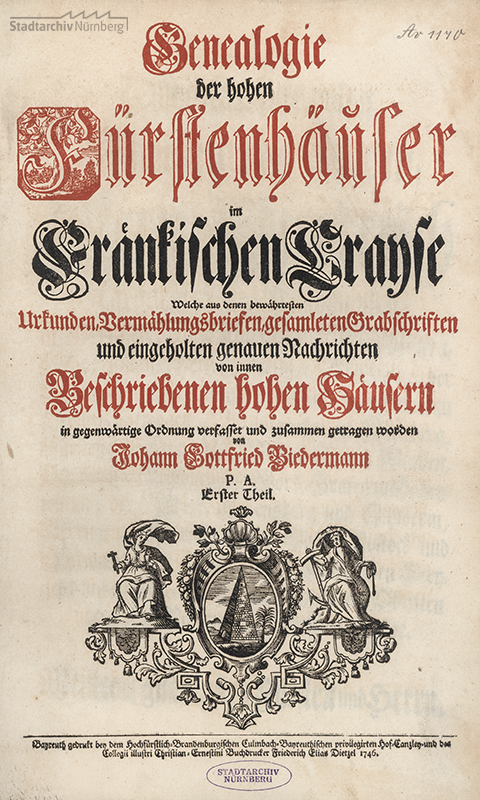 Stadtarchiv Nürnberg
Av 1170
Genealogie
der hohen
Fürstenhäuser
im
Fränkischen Crayse
Welche aus denen bewährtesten
Urkunden, Vermählungsbriefen, gesamleten Grabschriften
und eingeholten genauen Nachrichten
von innen
Beschriebenen hohen Häusern
in gegenwärtige Ordnung verfasset und zusammen getragen worden
von
Johann Gottfried Biedermann
P. A.
Erster Theil.
Bayreuth gedrukt bey dem Hochfürstlich-Brandenburgischen Culmbach-Bayreuthischen privilegirten Hof-Canzley-und des
Collegii illustri Christian-Ernestini Buchdrucker Friederich Elias Dietzel 1746.
STADTARCHIV
NÜRNBERG